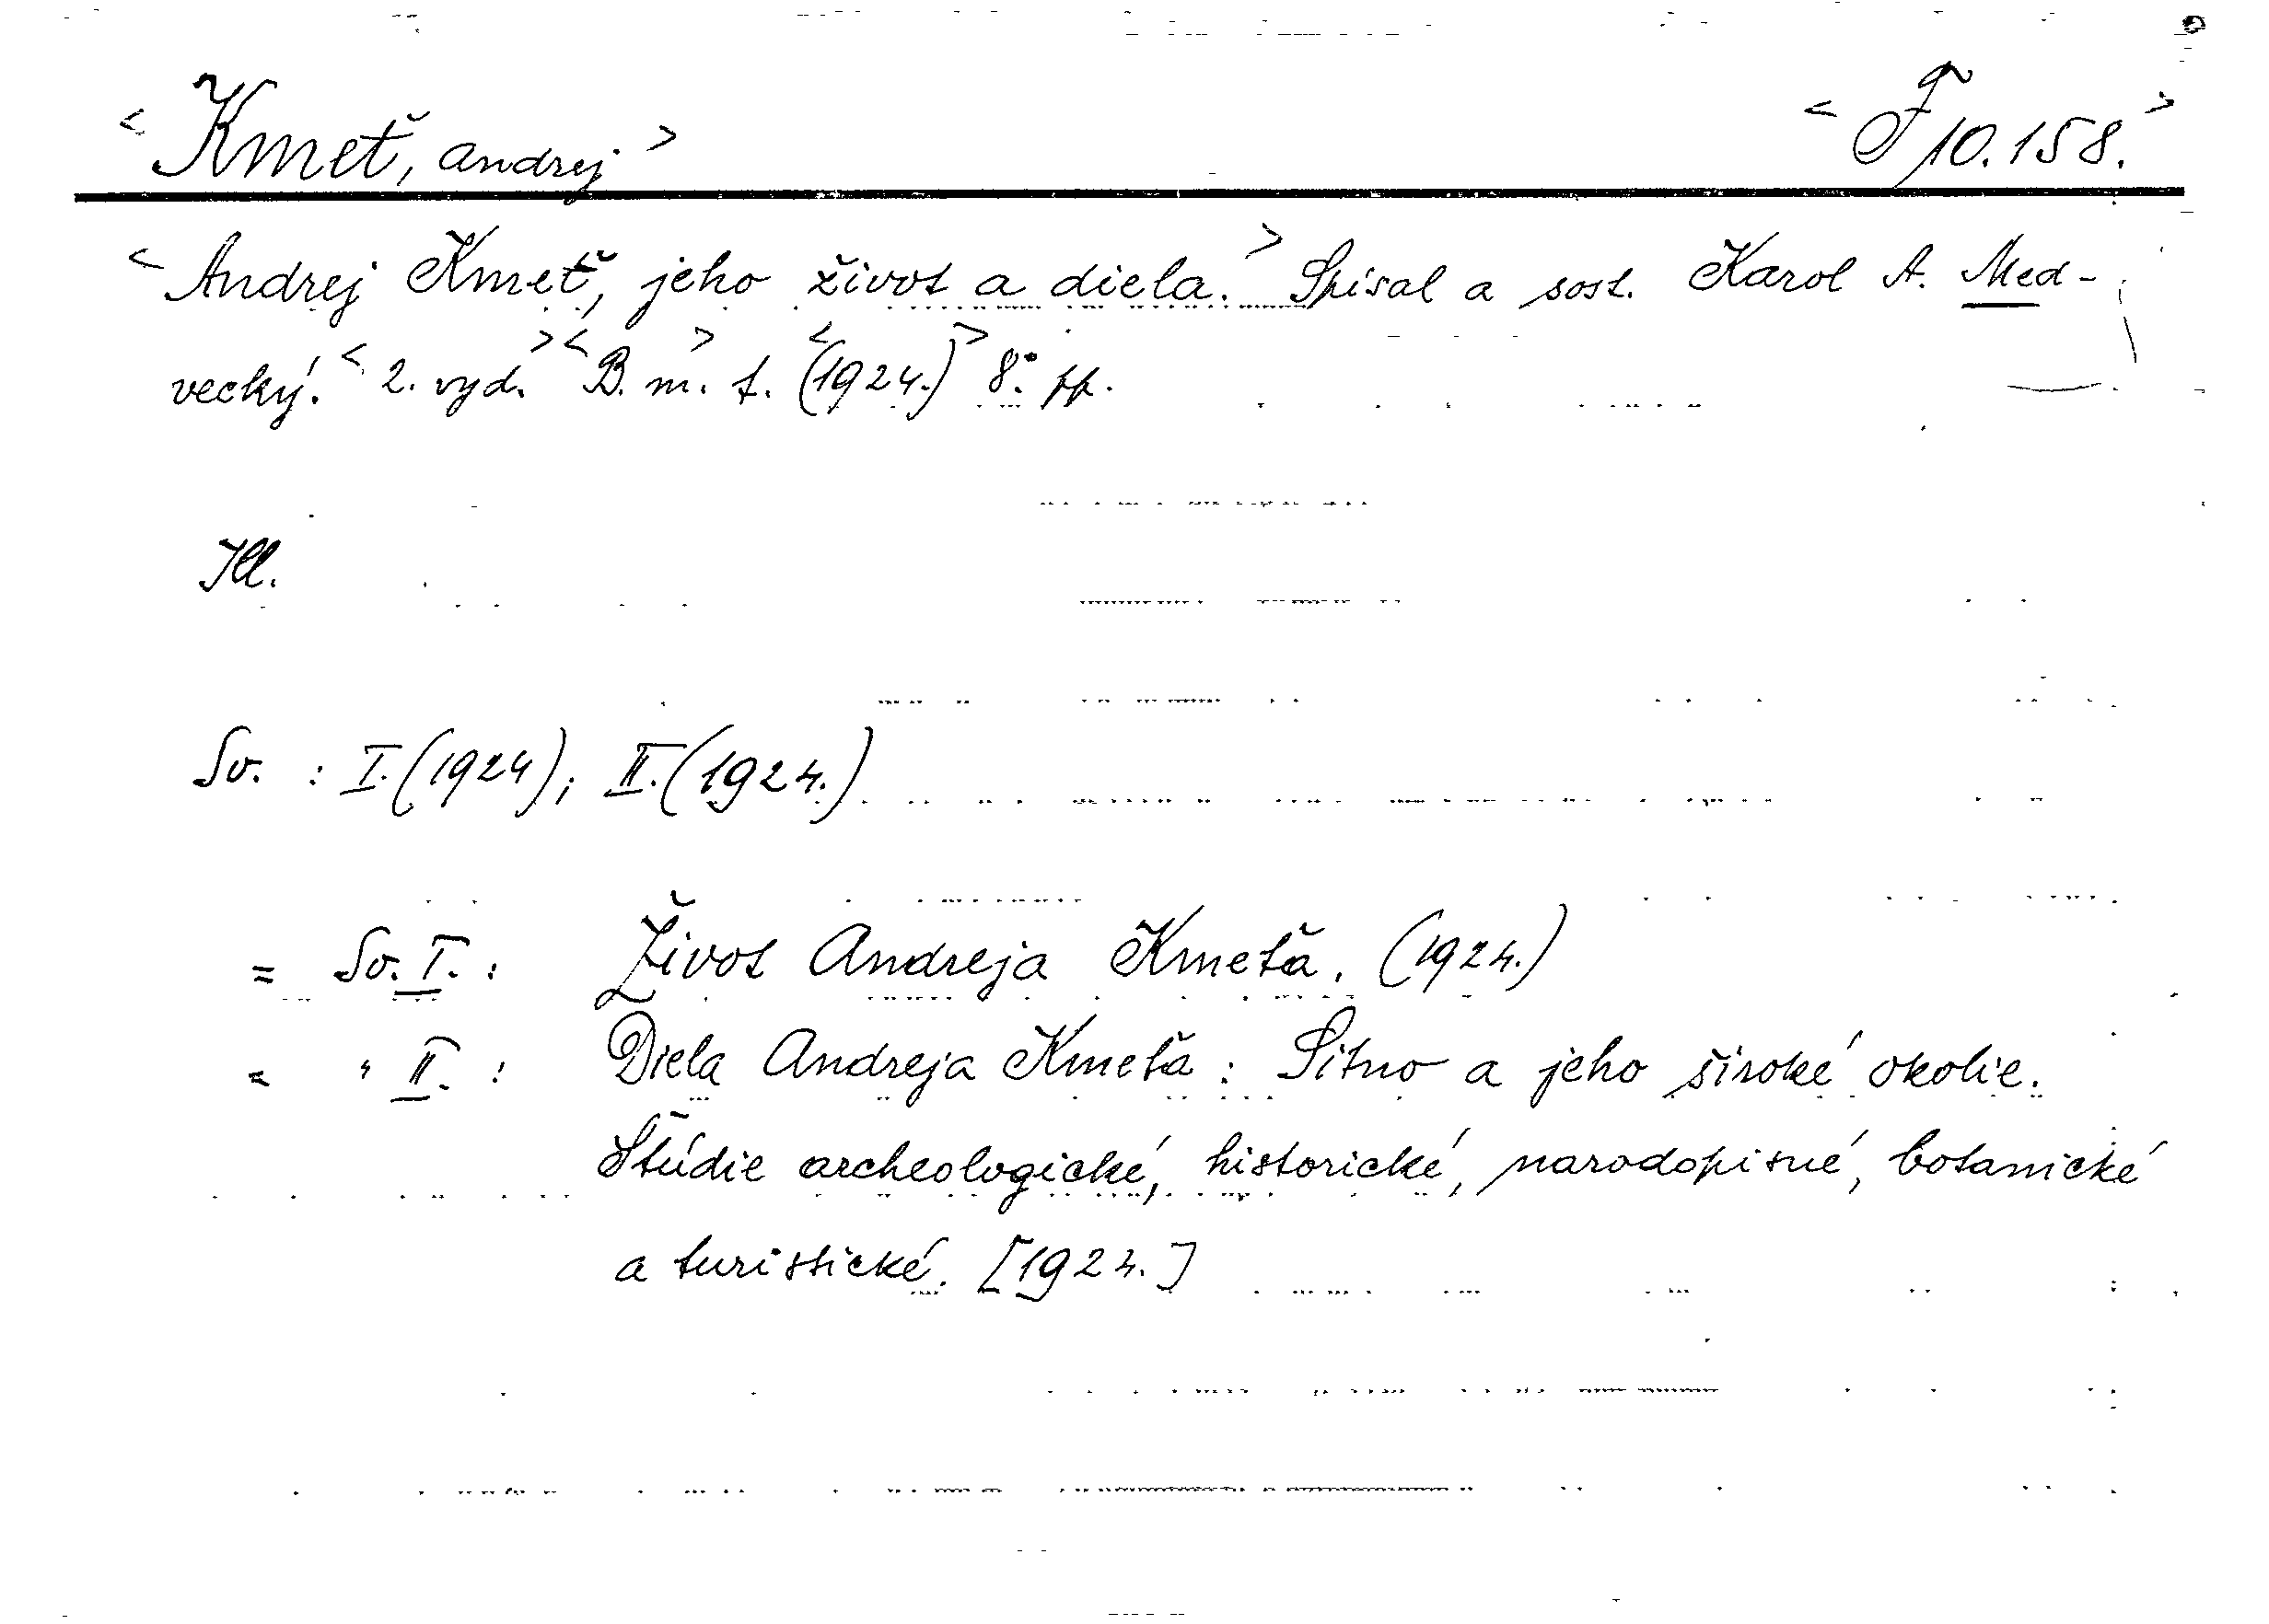 <Kmeť, Andrej> <F 10.158.>
<Andrej Kmeť, jeho život a diela.> Spísal a sost. Karol A. Med-
vecký. <2. vyd.> <B. m. t.> <(1924.)> 8°. pp.
Ill.
Sv. : I. (1924); II. (1924.)
= Sv. I. : Život Andreja Kmeťa. (1924.)
= " II. : Diela Andreja Kmeťa : Sitno a jeho široké okolie.
Štúdie archeologické, historické, narodopisné, botanické
a turistické. [1924.]